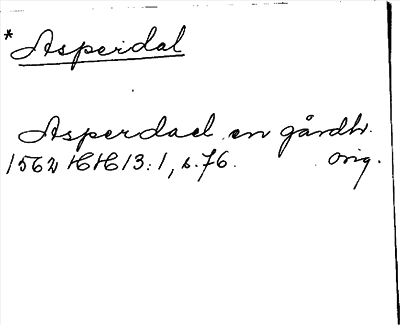 *Asperdal
Asperdael en gårdh.
1562 HH 13:1, s. 76. orig.